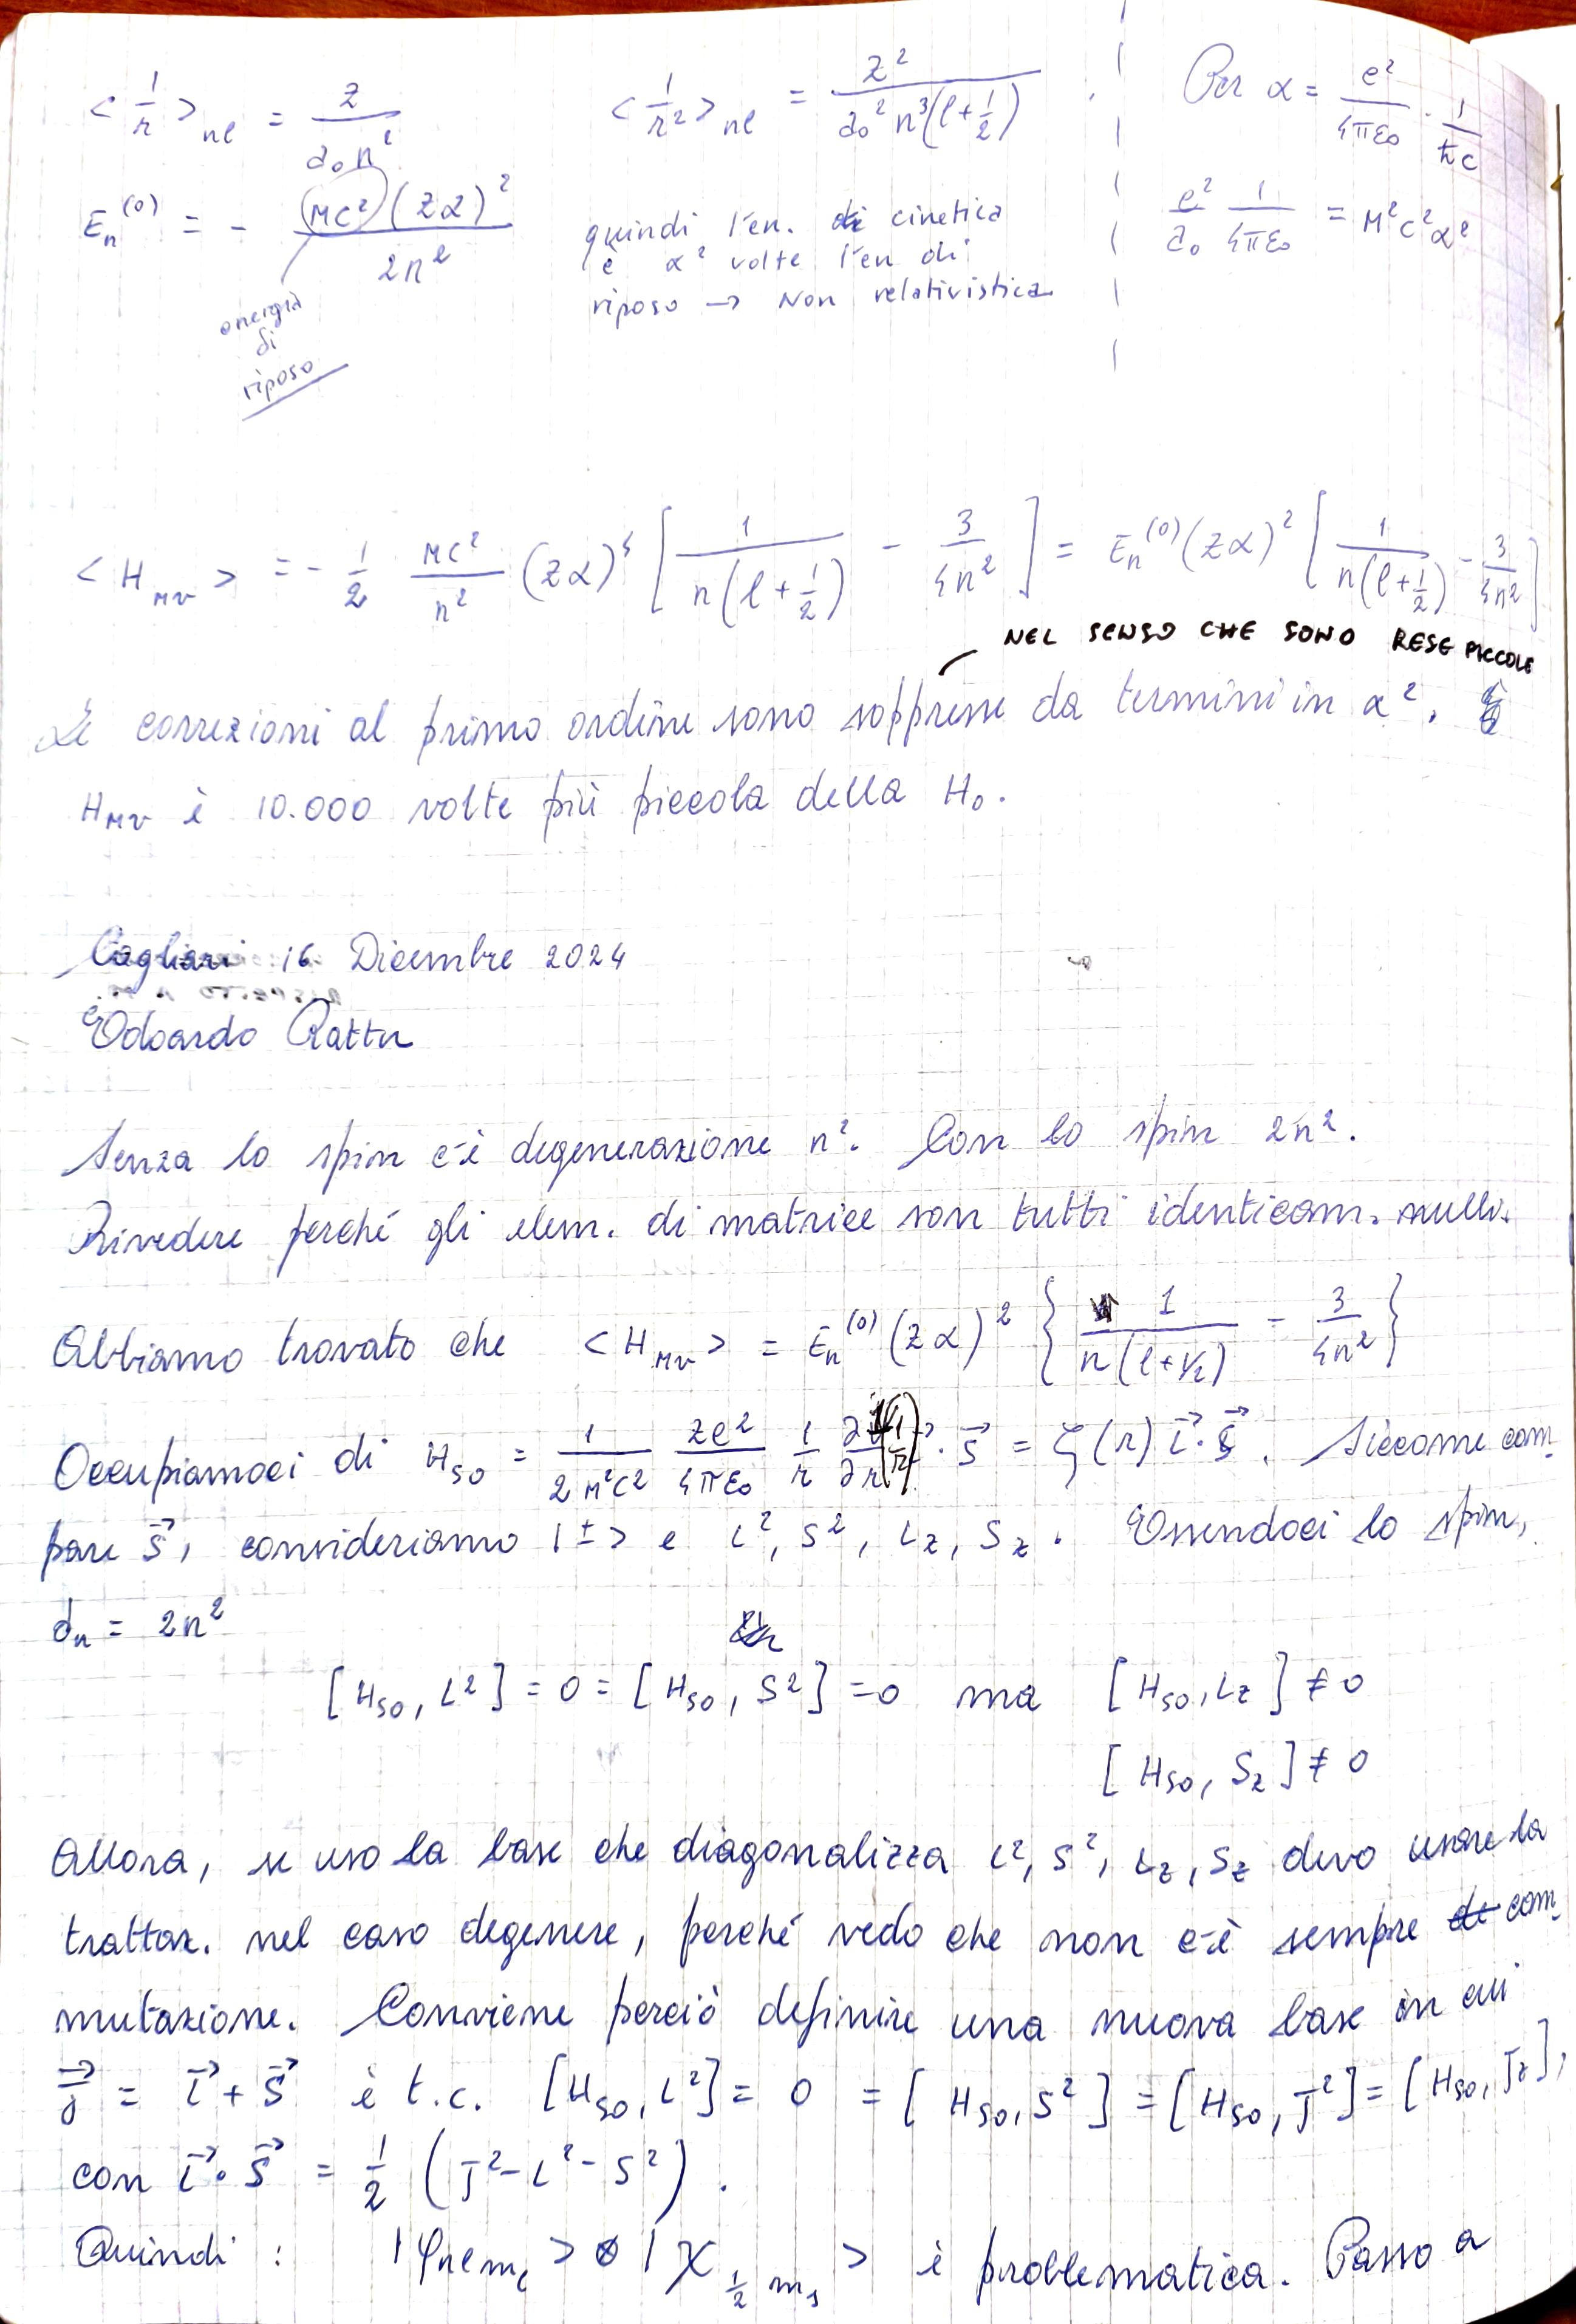 < 1/r >_nl = Z / (a₀ n²)    < 1/r² >_nl = Z² / (a₀² n³ (l + 1/2)) .    Per α = e²/(4πε₀) · 1/(ħc)
E_n^(0) = - (MC²)(Zα)² / (2n²)    e²/a₀ 1/(4πε₀) = M²C²α²
quindi l'en. di cinetica
è α² volte l'en di
riposo → Non relativistica
energia
di
riposo
< H_MV > = - 1/2 MC²/n² (Zα)⁴ [ 1/(n(l + 1/2)) - 3/(4n²) ] = E_n^(0) (Zα)² [ 1/(n(l + 1/2)) - 3/(4n²) ]
NEL SENSO CHE SONO RESE PICCOLE
Le correzioni al primo ordine sono soppresse da termini in α².
H_MV è 10.000 volte più piccola della H₀.
Cagliari 16 Dicembre 2024
Edoardo Pattu
Senza lo spin c'è degenerazione n². Con lo spin 2n².
Rivedere perché gli elem. di matrice son tutti identicam. nulli.
Abbiamo trovato che < H_MV > = E_n^(0) (Zα)² { 1/(n(l+1/2)) - 3/(4n²) }
Occupiamoci di H_SO = 1/(2M²C²) Ze²/(4πε₀) 1/r ∂/∂r (1/r) · S⃗ = ζ(r) L⃗·S⃗. Siccome com-
pare S⃗, consideriamo |±> e L², S², L_z, S_z. Essendoci lo spin,
d_n = 2n²
[H_SO, L²] = 0 = [H_SO, S²] = 0 ma [H_SO, L_z] ≠ 0
[H_SO, S_z] ≠ 0
Allora, se uso la base che diagonalizza L², S², L_z, S_z devo usare la
trattaz. nel caso degenere, perché vedo che non c'è sempre com-
mutazione. Conviene perciò definire una nuova base in cui
J⃗ = L⃗ + S⃗ è t.c. [H_SO, L²] = 0 = [H_SO, S²] = [H_SO, J²] = [H_SO, J_z],
con L⃗·S⃗ = 1/2 (J² - L² - S²).
Quindi : |φ_nlm_l > ⊗ |χ_1/2 m_s > è problematica. Passo a